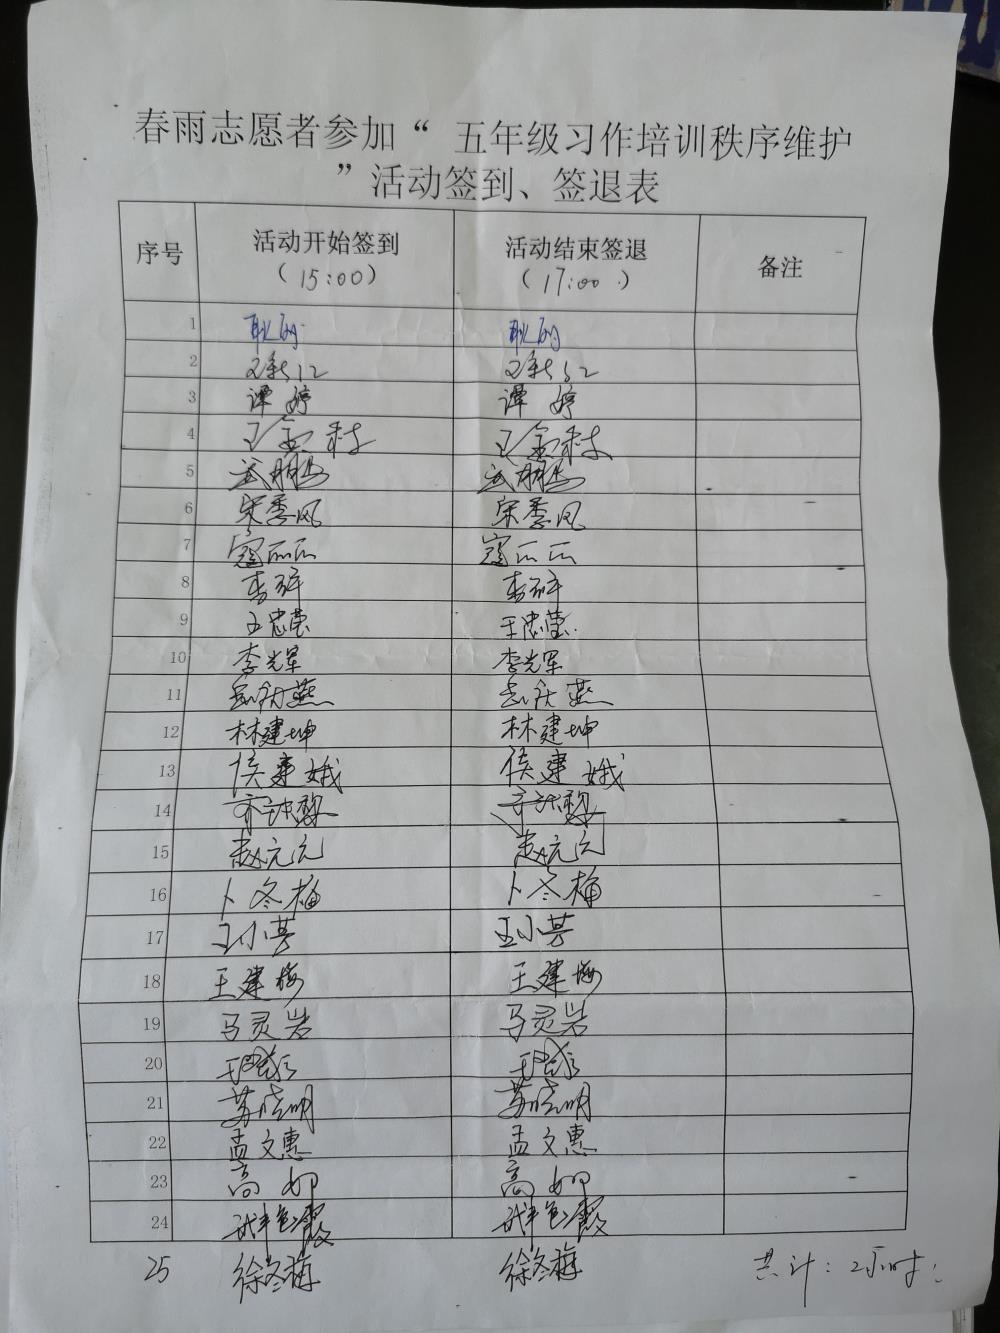 春雨志愿者参加“ 五年级习作培训秩序维护
”活动签到、签退表
序号 活动开始签到 (15:00) 活动结束签退 (17:00) 备注
1
2
3 谭婷 谭婷
4 王金村 王金村
5
6 宋秀风 宋秀风
7 寇丽丽 寇丽丽
8
9 王忠莹 王忠莹
10 李光军 李光军
11
12 林建坤 林建坤
13 侯建娥 侯建娥
14
15 赵元元 赵元元
16 卜冬梅 卜冬梅
17 王小芳 王小芳
18 王建梅 王建梅
19 马灵岩 马灵岩
20
21 苏晓明 苏晓明
22 孟文惠 孟文惠
23 高 高
24
25 徐冬梅 徐冬梅 共计:2小时